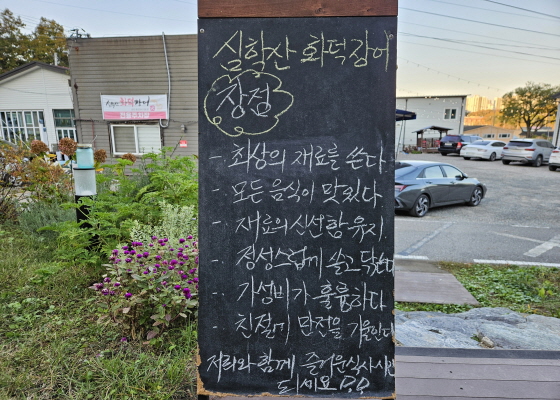 심학산 화덕장어
장점
- 최상의 재료를 쓴다
- 모든 음식이 맛있다
- 재료의 신선함 유지
- 정성스럽게 쓸고 닦는다
- 가성비가 훌륭하다
- 친절에 만전을 기울인다
저희와 함께 즐거운 식사시간
되세요 ^^